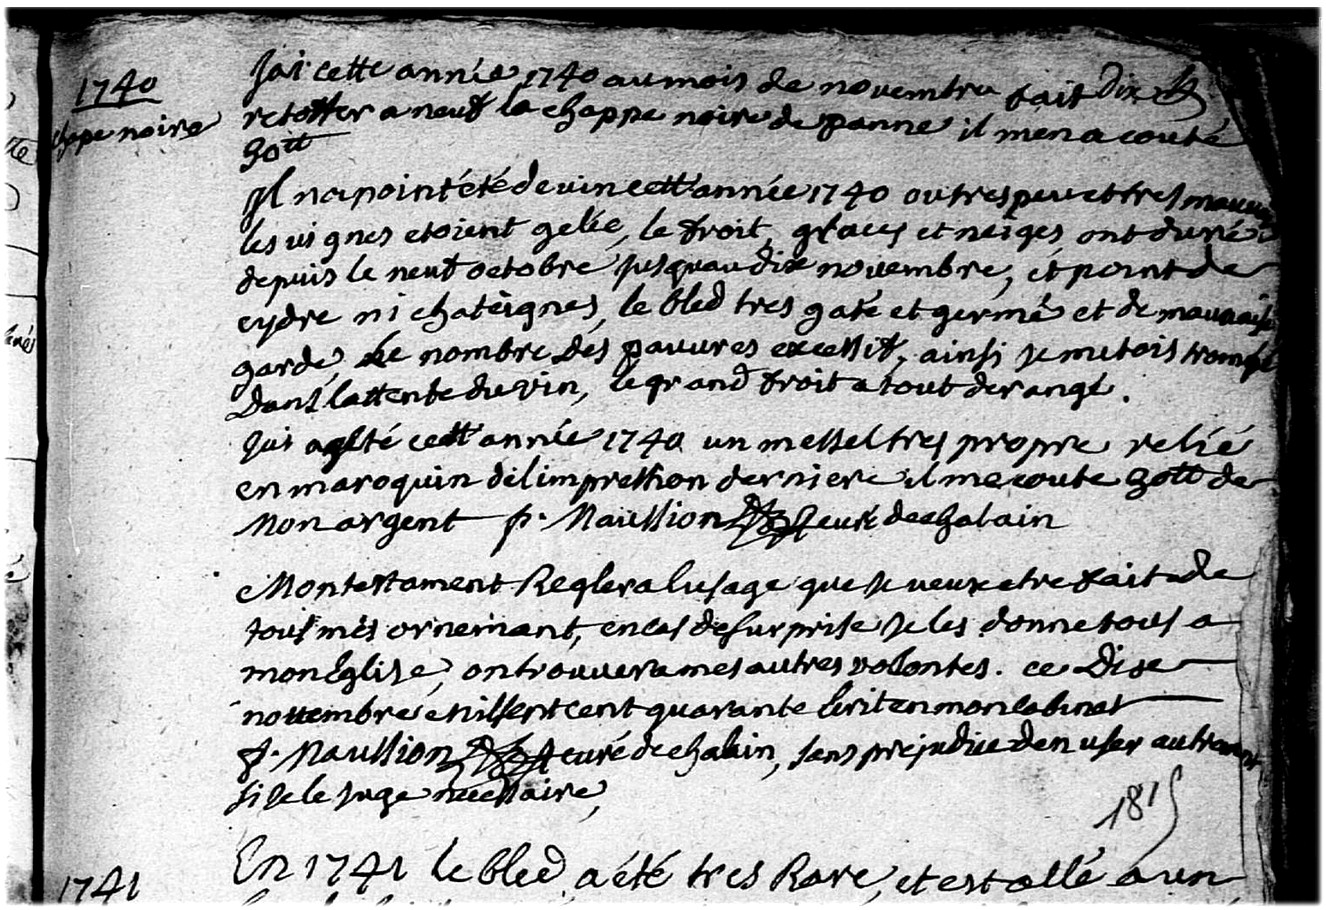 1740
chape noire
J'ai cette année 1740 au mois de novembre fait
retoffer a neuf la chappe noire de panne il men a couté
30tt
Il na point été de vin cett année 1740 ou tres peu et tres mauvais
les vignes etoient gelée, le froit, glaces et neiges ont duré
depuis le neuf octobre jusquau dix novembre, et point de
cydre ni chateignes, le bled tres gaté et germé et de mauvaise
garde, le nombre des pauvres excessif, ainsi je metois trompé
Dans lattente du vin, le grand froit a tout derangé.
Jai aghté cett année 1740 un messel tres propre relié
en maroquin de limpression derniere il me coute 30tt de
Mon argent p. Maussion curé de chalain
Mon testament Reglera lusage que je veux etre fait de
tous mes ornemant, en cas de surprise Je les donne tous a
mon Eglise, on trouvera mes autres volontes. ce Dixe
novembre mil sept cent quarante Ecrit en mon cabinet
p. Maussion curé de chalain, sans prejudice den user autrement
si je le juge necessaire,
181
1741
En 1741 le bled a été tres Rare, et est allé a un